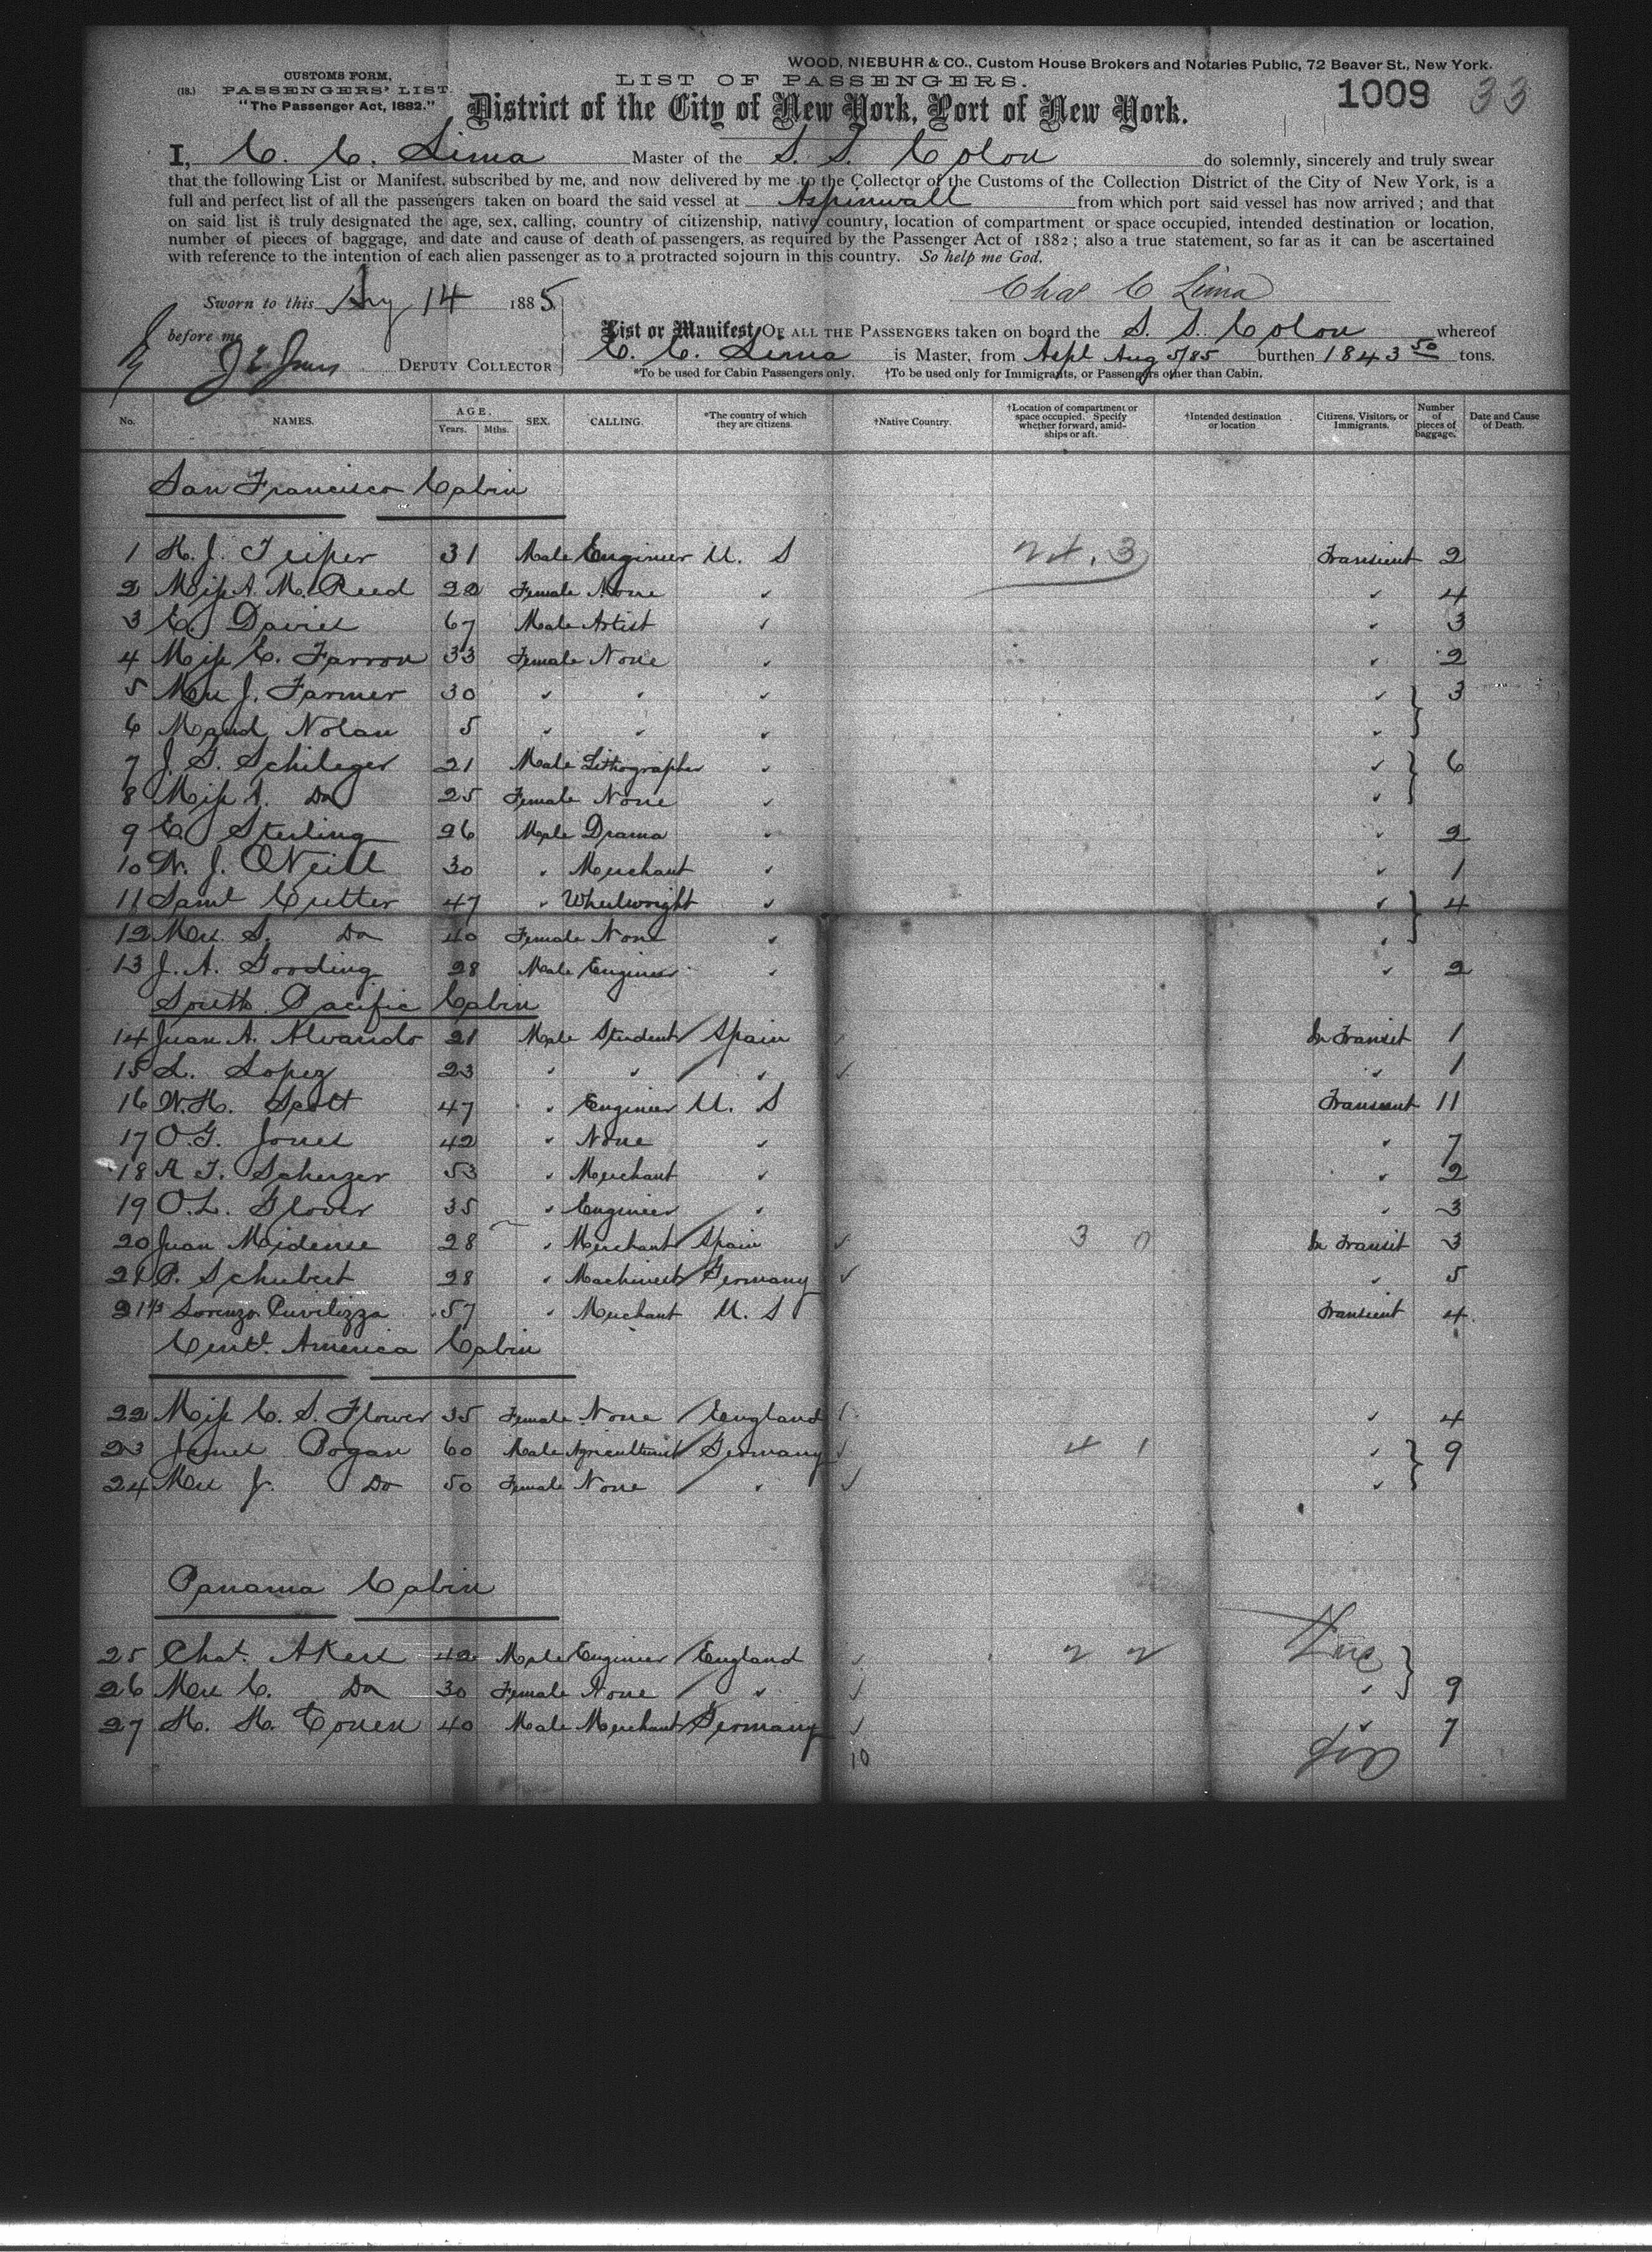 WOOD, NIEBUHR & CO., Custom House Brokers and Notaries Public, 72 Beaver St., New York.
CUSTOMS FORM,
(18.) PASSENGERS' LIST.
"The Passenger Act, 1882."
LIST OF PASSENGERS.
1009 33
District of the City of New York, Port of New York.
I, C. C. Lima Master of the S. S. Colon do solemnly, sincerely and truly swear
that the following List or Manifest, subscribed by me, and now delivered by me to the Collector of the Customs of the Collection District of the City of New York, is a
full and perfect list of all the passengers taken on board the said vessel at Aspinwall from which port said vessel has now arrived; and that
on said list is truly designated the age, sex, calling, country of citizenship, native country, location of compartment or space occupied, intended destination or location,
number of pieces of baggage, and date and cause of death of passengers, as required by the Passenger Act of 1882; also a true statement, so far as it can be ascertained
with reference to the intention of each alien passenger as to a protracted sojourn in this country. So help me God.
Chas C Lima
Sworn to this Aug 14 1885
before me
DEPUTY COLLECTOR
List or Manifest, OF ALL THE PASSENGERS taken on board the S. S. Colon whereof
C. C. Lima is Master, from Aspl Aug 5/85 burthen 1843 50 tons.
*To be used for Cabin Passengers only. †To be used only for Immigrants, or Passengers other than Cabin.
No. NAMES. AGE. Years. Mths. SEX. CALLING. *The country of which they are citizens. †Native Country. †Location of compartment or space occupied. Specify whether forward, amidships or aft. †Intended destination or location Citizens, Visitors, or Immigrants. Number of pieces of baggage. Date and Cause of Death.
San Francisco Cabin
1 H. J. Teiper 31 Male Engineer U. S 24.3 Transient 2
2 Miss A. M. Reed 22 Female None " " 4
3 E. Davies 67 Male Artist " " 3
4 Miss C. Farron 33 Female None " " 2
5 Mrs J. Farmer 30 " " " " 3
6 Maud Nolan 5 " " " "
7 J. S. Schileger 21 Male Lithographer " " 6
8 Miss A. Do 25 Female None " "
9 E. Sterling 26 Male Drama " " 2
10 W. J. ONeill 30 " Merchant " " 1
11 Saml Cutter 47 " Whelwright " " 4
12 Mrs. S. Do 40 Female None " "
13 J. A. Gooding 28 Male Engineer " " 2
South Pacific Cabin
14 Juan A. Alvarado 21 Male Student Spain In Transit 1
15 L. Lopez 23 " " " " 1
16 W. H. Scott 47 " Engineer U. S Transient 11
17 O. G. Jones 42 " None " " 7
18 A. T. Scherzer 53 " Merchant " " 2
19 O. L. Glover 35 " Engineer " " 3
20 Juan Maidense 28 " Merchant Spain 3 0 In Transit 3
21 P. Schubert 28 " Machinist Germany " 5
21½ Lorenzo 57 " Merchant U. S Transient 4
Centl. America Cabin
22 Miss C. S. Flower 35 Female None England " 4
23 James Pogan 60 Male Agriculturist Germany 4 1 " 9
24 Mrs J. Do 50 Female None " "
Panama Cabin
25 Chas. Akers 42 Male Engineer England 2 2
26 Mrs C. Do 30 Female None " " 9
27 H. H. Cohen 40 Male Merchant Germany " 7
10